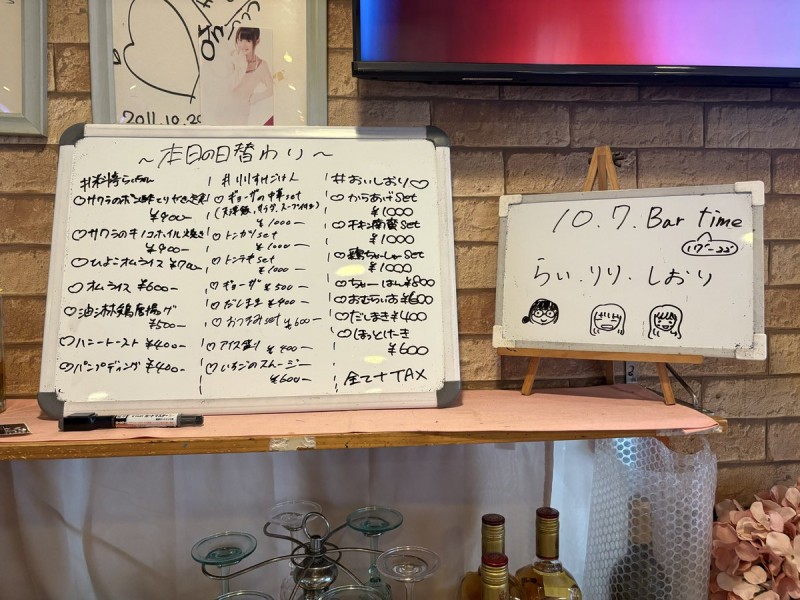 2011.10.20
~本日の日替わり~
♡サクラのポン酢とりやき定食
¥900ー
♡サクラのキノコホイル焼き
¥900ー
♡ひよこオムライス ¥700ー
♡オムライス ¥600ー
♡油淋鶏唐揚げ
¥500ー
♡ハニートースト ¥400ー
♡パンプディング ¥400ー
♡ギョーザの中華set
¥1000ー
♡トンカツset
¥1000ー
♡トンテキset
¥1000ー
♡ギョーザ ¥500ー
♡だしまき ¥400ー
♡おつまみset ¥600ー
♡アイス盛り ¥400ー
♡いちごのスムージー
¥600ー
#おいしおり♡
♡からあげset
¥1000
♡チキン南蛮set
¥1000
♡鶏ちゃーしゅーset
¥1000
♡ちゃーはん¥800
♡おむらいす¥600
♡だしまき¥400
♡ほっとけーき
¥600
全て+TAX
10.7. Bar time
17-22
らい.りり.しおり